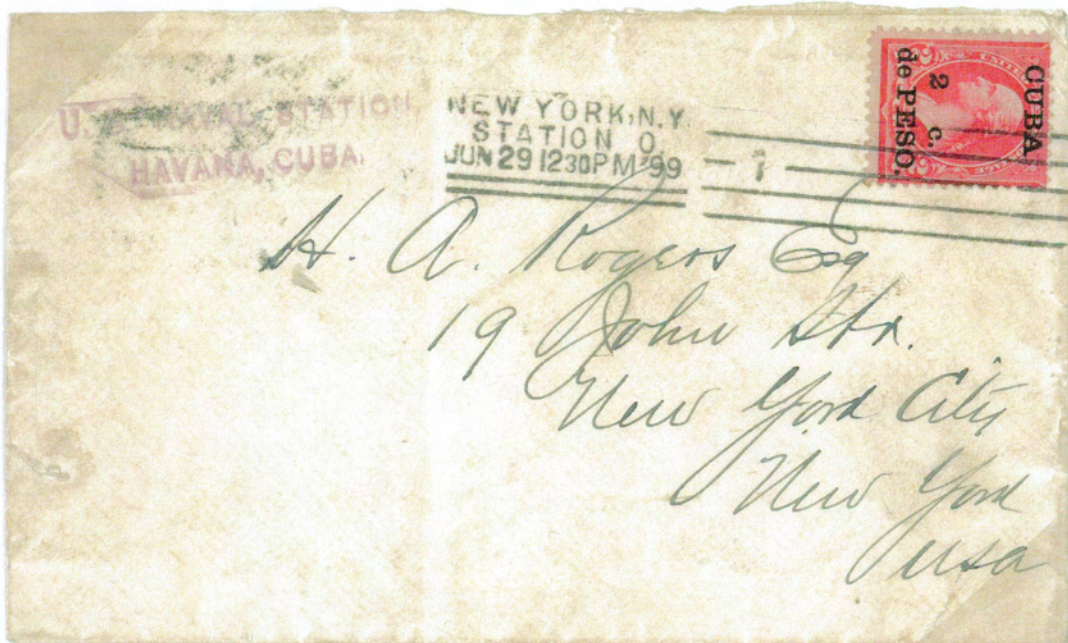 U. S. NAVAL STATION,
HAVANA, CUBA.
NEW YORK, N.Y.
STATION O.
JUN 29 1230PM '99
1
CUBA
2 c.
de PESO.
UNITED
2 2
H. A. Rogers Esq
19 John Str.
New York City
New York
USA